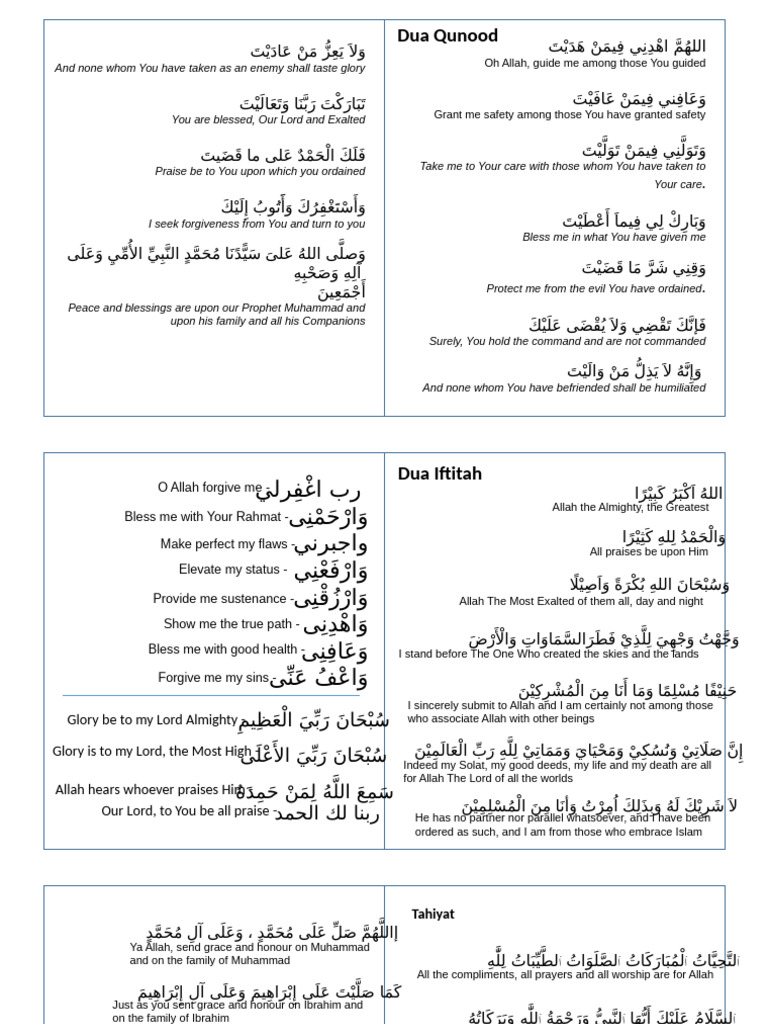 Dua Qunood
اللهُمَّ اهْدِنِي فِيمَنْ هَدَيْتَ
Oh Allah, guide me among those You guided
وَعَافِنِي فِيمَنْ عَافَيْتَ
Grant me safety among those You have granted safety
وَتَوَلَّنِي فِيمَنْ تَوَلَّيْتَ
Take me to Your care with those whom You have taken to
Your care.
وَبَارِكْ لِي فِيماَ أَعْطَيْتَ
Bless me in what You have given me
وَقِنِي شَرَّ مَا قَضَيْتَ
Protect me from the evil You have ordained.
فَإنَّكَ تَقْضِي وَلاَ يُقْضَى عَلَيْكَ
Surely, You hold the command and are not commanded
وَإِنَّهُ لاَ يَذِلُّ مَنْ وَالَيْتَ
And none whom You have befriended shall be humiliated
وَلاَ يَعِزُّ مَنْ عَادَيْتَ
And none whom You have taken as an enemy shall taste glory
تَبَارَكْتَ رَبَّنَا وَتَعَالَيْتَ
You are blessed, Our Lord and Exalted
فَلَكَ الْحَمْدُ عَلى ما قَضَيتَ
Praise be to You upon which you ordained
وَأَسْتَغْفِرُكَ وَأَتُوبُ إِلَيْكَ
I seek forgiveness from You and turn to you
وَصلَّى اللهُ عَلىَ سَيَّدَنَا مُحَمَّدٍ النَّبِيِّ الأُمِّيِ وَعَلَى
آلِهِ وَصَحْبِهِ
أَجْمَعِينَ
Peace and blessings are upon our Prophet Muhammad and
upon his family and all his Companions
Dua Iftitah
اللهُ اَكْبَرُ كَبِيْرًا
Allah the Almighty, the Greatest
وَالْحَمْدُ لِلهِ كَثِيْرًا
All praises be upon Him
وَسُبْحَانَ اللهِ بُكْرَةً وَاَصِيْلًا
Allah The Most Exalted of them all, day and night
وَجَّهْتُ وَجْهِيَ لِلَّذِيْ فَطَرَالسَّمَاوَاتِ وَالْأَرْضَ
I stand before The One Who created the skies and the lands
حَنِيْفًا مُسْلِمًا وَمَا أَنَا مِنَ الْمُشْرِكِيْنَ
I sincerely submit to Allah and I am certainly not among those
who associate Allah with other beings
إِنَّ صَلَاتِيْ وَنُسُكِيْ وَمَحْيَايَ وَمَمَاتِيْ لِلَّهِ رَبِّ الْعَالَمِيْنَ
Indeed my Solat, my good deeds, my life and my death are all
for Allah The Lord of all the worlds
لاَ شَرِيْكَ لَهُ وَبِذَلِكَ اُمِرْتُ وَأَنَا مِنَ الْمُسْلِمِيْنَ
He has no partner nor parallel whatsoever, and I have been
ordered as such, and I am from those who embrace Islam
O Allah forgive me - رب اغْفِرلي
Bless me with Your Rahmat - وَارْحَمْنِى
Make perfect my flaws - واجبرني
Elevate my status - وَارْفَعْنِي
Provide me sustenance - وَارْزُقْنِى
Show me the true path - وَاهْدِنِى
Bless me with good health - وَعَافِنِى
Forgive me my sins - وَاعْفُ عَنِّى
Glory be to my Lord Almighty - سُبْحَانَ رَبِّيَ الْعَظِيمِ
Glory is to my Lord, the Most High - سُبْحَانَ رَبِّيَ الأَعْلَى
Allah hears whoever praises Him - سَمِعَ اللَّهُ لِمَنْ حَمِدَهُ
Our Lord, to You be all praise - ربنا لك الحمد
Tahiyat
ٱلتَّحِيَّاتُ ٱلْمُبَارَكَاتُ ٱلصَّلَوَاتُ ٱلطَّيِّبَاتُ لِلَّٰهِ
All the compliments, all prayers and all worship are for Allah
ٱلسَّلَامُ عَلَيْكَ أَيُّهَا ٱلنَّبِيُّ وَرَحْمَةُ ٱللَّهِ وَبَرَكَاتُهُ
إاللَّهُمَّ صَلِّ عَلَى مُحَمَّدٍ ، وَعَلَى آلِ مُحَمَّدٍ
Ya Allah, send grace and honour on Muhammad
and on the family of Muhammad
كَمَا صَلَّيْتَ عَلَى إِبْرَاهِيمَ وَعَلَى آلِ إِبْرَاهِيمَ
Just as you sent grace and honour on Ibrahim and
on the family of Ibrahim